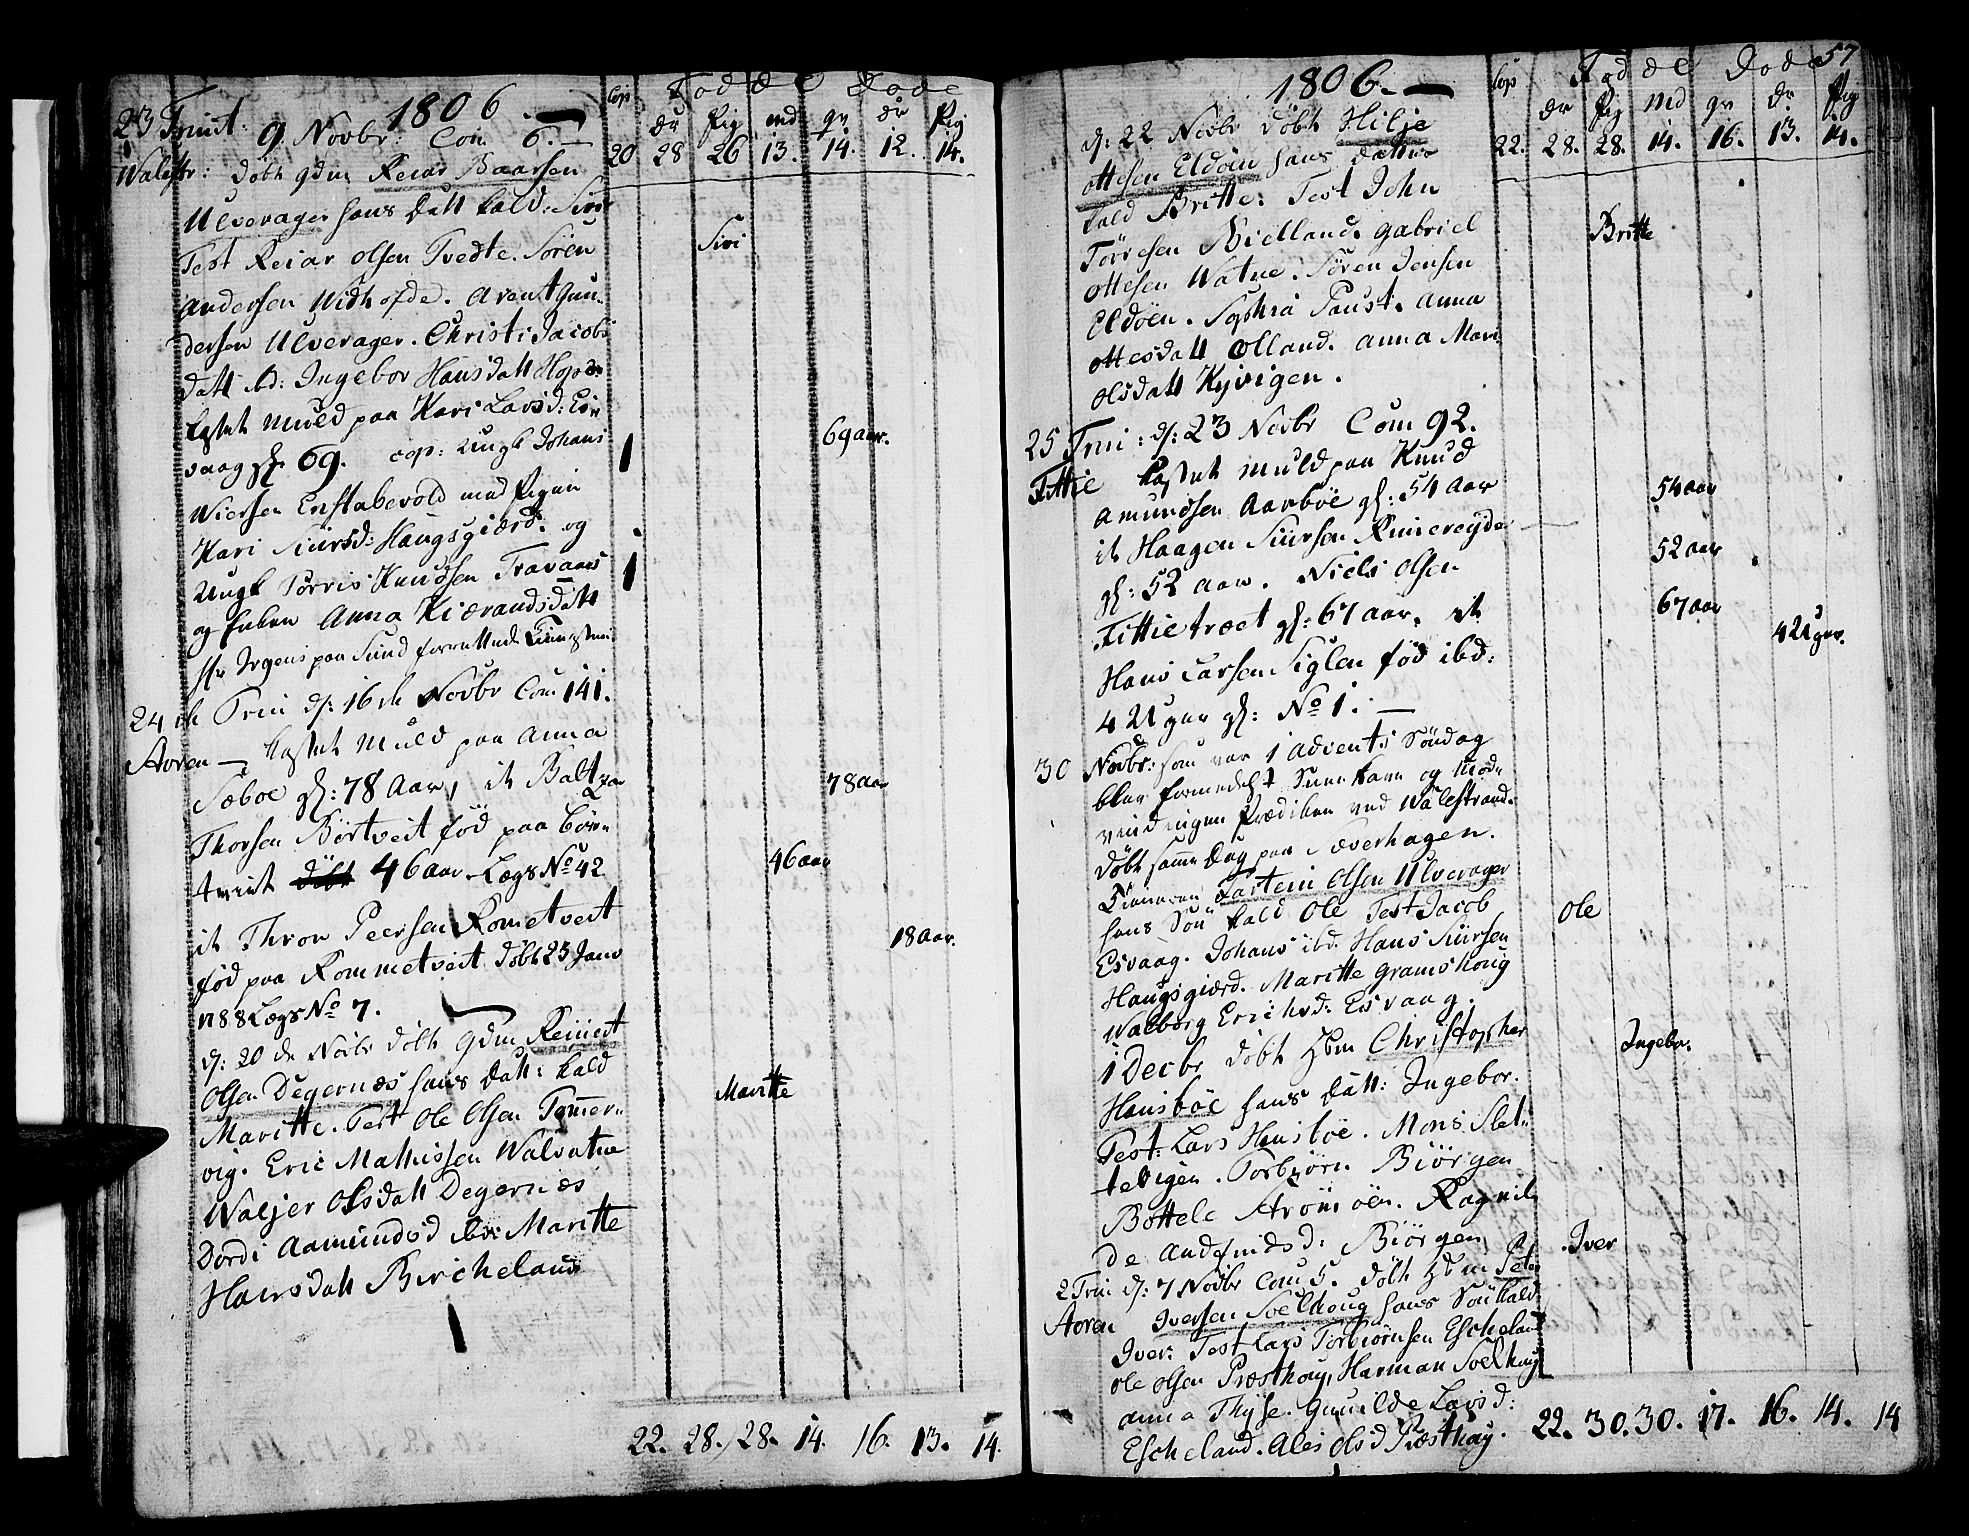 1806.
23 Trinit: 9 Novbr. Com. 6.
Walestr: döbt gdm Reiar Baarsen
Ulverager hans datt kald: Siri
Test Reiar Olsen Tvedte. Sören
Andersen Widhofde. Arent Gun-
dersen Ulverager. Christi Jacobs
datt ibd: Ingebor Hansdatt
kastet Muld paa Kari Larsd: Es-
vaag gl. 69. cop: Ungk Johans
Wiersen Enstabevold med Pigen
Kari Siursd: Haugsgiærd. og
Ungk Torris Knudsen Travaas
og Enken Anna Kiærandsdatt
Hr Irgens paa Sund forrettede
24 de Trin d: 16 de Novbr Com 141.
Aoren kastet Muld paa Anna
Sæboe gl: 78 Aar, it Baltzer
Thorsen Börtveit föd paa Bör-
tveit döbt 46 aar Lægs No 42
it Thron Peersen Rometveit
föd paa Rommetveit döbt 25 Janv
1788 Lægs No 7.
d: 20 de Novbr döbt gdm Reinert
Olsen Degernæs hans datt: kald
Maritte. Test Ole Olsen Tømmer-
vig. Eric Mathissen Walvatne
Waljer Olsdatt Degernæs
Dordi Aamundsd ibd: Maritte
Hansdatt Bircheland
cop Födde Döde
dr Pig md qv dr Pig
20 28 26 13. 14. 12. 14.
Siri
69 aar.
78 aar
46 aar
18 aar.
Maritte
22. 28. 28. 14. 16. 13. 14.
1806. 57
d: 22 Novbr döbt Hilje
Ottesen Eldöen hans datter
kald Britte: Test John
Törresen Bielland. Gabriel
Ottesen Watne. Sören Jensen
Eldöen. Sophia Faust. Anna
Ottesdatt Olland. Anna Mari
Olsdatt Kyvigen.
25 Trin: d: 23 Novbr Com 92.
Fittie kastet Muld paa Knud
Amundsen Aarböe gl: 54 Aar
it Haagen Siursen Rimereyde
gl: 52 aar. Niels Olsen
Fittietræet gl: 67 aar. it
Hans Larsen Siglen föd ibd:
4 Uger gl: No 1.
30 Novbr: som var 1 Advents Söndag
blev formedelst
vind ingen Prædiken ved Walestrand.
döbt samme Dag paa Sæverhagen.
Lartein Olsen Ulverager
hans Sön kald Ole Test Jacob
Esvaag. Johans ibd. Hans Siursen
Haugsgiærd. Maritte Gramshoug
Walborg Erichsd: Esvaag.
1 Decbr döbt Hbm Christopher
Hansböe hans datt: Ingebor.
Test: Lars Hansböe. Mons Slet-
tevigen. Torbiörn Biörgen
Bottele Strömöen. Ragnil-
de Andfindsd: Biörgen
2 Trin d: 7 Novbr Com 5. döbt Hbm Peter
Aoren Iversen Soelhoug hans Sön kald:
Iver: Test Lars Torbiörnsen Escheland
Ole Olsen Præsthoug, Harman Soelhoug
Anna Thyse. Gunilde Larsd:
Escheland. Ales Olsd Præsthoug.
cop Födde Döde
dr Pig md qv dr Pig
22. 28. 28. 14. 16. 13. 14.
Britte
54 aar
52 aar
67 aar
4 Uger.
Ole
Ingebor.
Iver
22. 30. 30. 17. 16. 14. 14